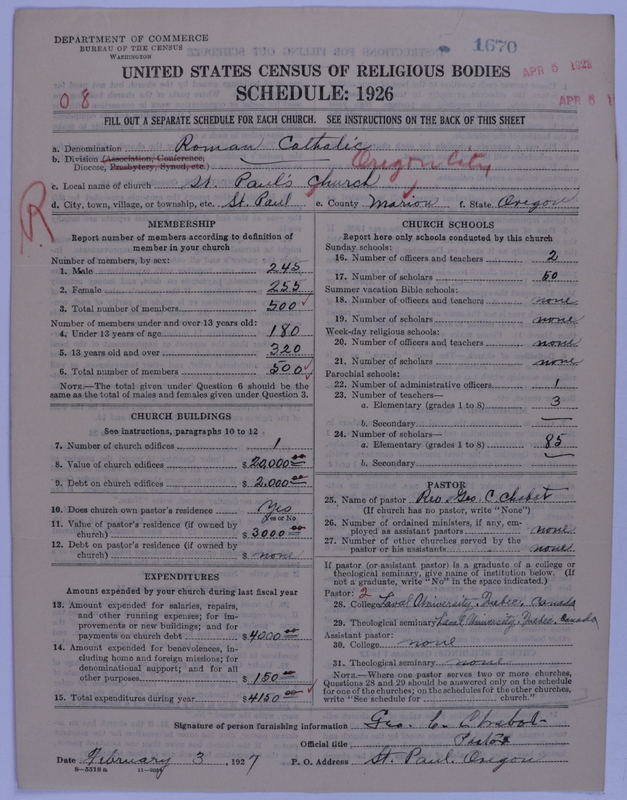 DEPARTMENT OF COMMERCE
BUREAU OF THE CENSUS
WASHINGTON
1670
UNITED STATES CENSUS OF RELIGIOUS BODIES
APR 5
SCHEDULE: 1926
APR 5
08
FILL OUT A SEPARATE SCHEDULE FOR EACH CHURCH. SEE INSTRUCTIONS ON THE BACK OF THIS SHEET
a. Denomination Roman Catholic
b. Division (Association, Conference,
Diocese, Presbytery, Synod, etc.) Oregon City
c. Local name of church St. Paul's Church
d. City, town, village, or township, etc. St. Paul e. County Marion f. State Oregon
R
MEMBERSHIP
Report number of members according to definition of
member in your church
Number of members, by sex:
1. Male 245
2. Female 255
3. Total number of members 500
Number of members under and over 13 years old:
4. Under 13 years of age 180
5. 13 years old and over 320
6. Total number of members 500
NOTE.—The total given under Question 6 should be the
same as the total of males and females given under Question 3.
CHURCH BUILDINGS
See instructions, paragraphs 10 to 12
7. Number of church edifices 1
8. Value of church edifices $20,000 00
9. Debt on church edifices $2,000 00
10. Does church own pastor's residence Yes
Yes or No
11. Value of pastor's residence (if owned by
church) $3000 00
12. Debt on pastor's residence (if owned by
church) $ none
EXPENDITURES
Amount expended by your church during last fiscal year
13. Amount expended for salaries, repairs,
and other running expenses; for im-
provements or new buildings; and for
payments on church debt $4000 00
14. Amount expended for benevolences, in-
cluding home and foreign missions; for
denominational support; and for all
other purposes $150 00
15. Total expenditures during year $4150 00
CHURCH SCHOOLS
Report here only schools conducted by this church
Sunday schools:
16. Number of officers and teachers 2
17. Number of scholars 50
Summer vacation Bible schools:
18. Number of officers and teachers none
19. Number of scholars none
Week-day religious schools:
20. Number of officers and teachers none
21. Number of scholars none
Parochial schools:
22. Number of administrative officers 1
23. Number of teachers—
a. Elementary (grades 1 to 8) 3
b. Secondary —
24. Number of scholars—
a. Elementary (grades 1 to 8) 85
b. Secondary —
PASTOR
25. Name of pastor Rev. Geo. C. Chabot
(If church has no pastor, write "None")
26. Number of ordained ministers, if any, em-
ployed as assistant pastors none
27. Number of other churches served by the
pastor or his assistants none
If pastor (or assistant pastor) is a graduate of a college or
theological seminary, give name of institution below. (If
not a graduate, write "No" in the space indicated.)
Pastor: 2
28. College Laval University, Quebec, Canada
29. Theological seminary Laval University, Quebec, Canada
Assistant pastor:
30. College none
31. Theological seminary none
NOTE.—Where one pastor serves two or more churches,
Questions 28 and 29 should be answered only on the schedule
for one of the churches; on the schedules for the other churches,
write "See schedule for church."
Signature of person furnishing information Geo. C. Chabot
Official title Pastor
Date February 3, 1927 P. O. Address St. Paul. Oregon
8—5518a